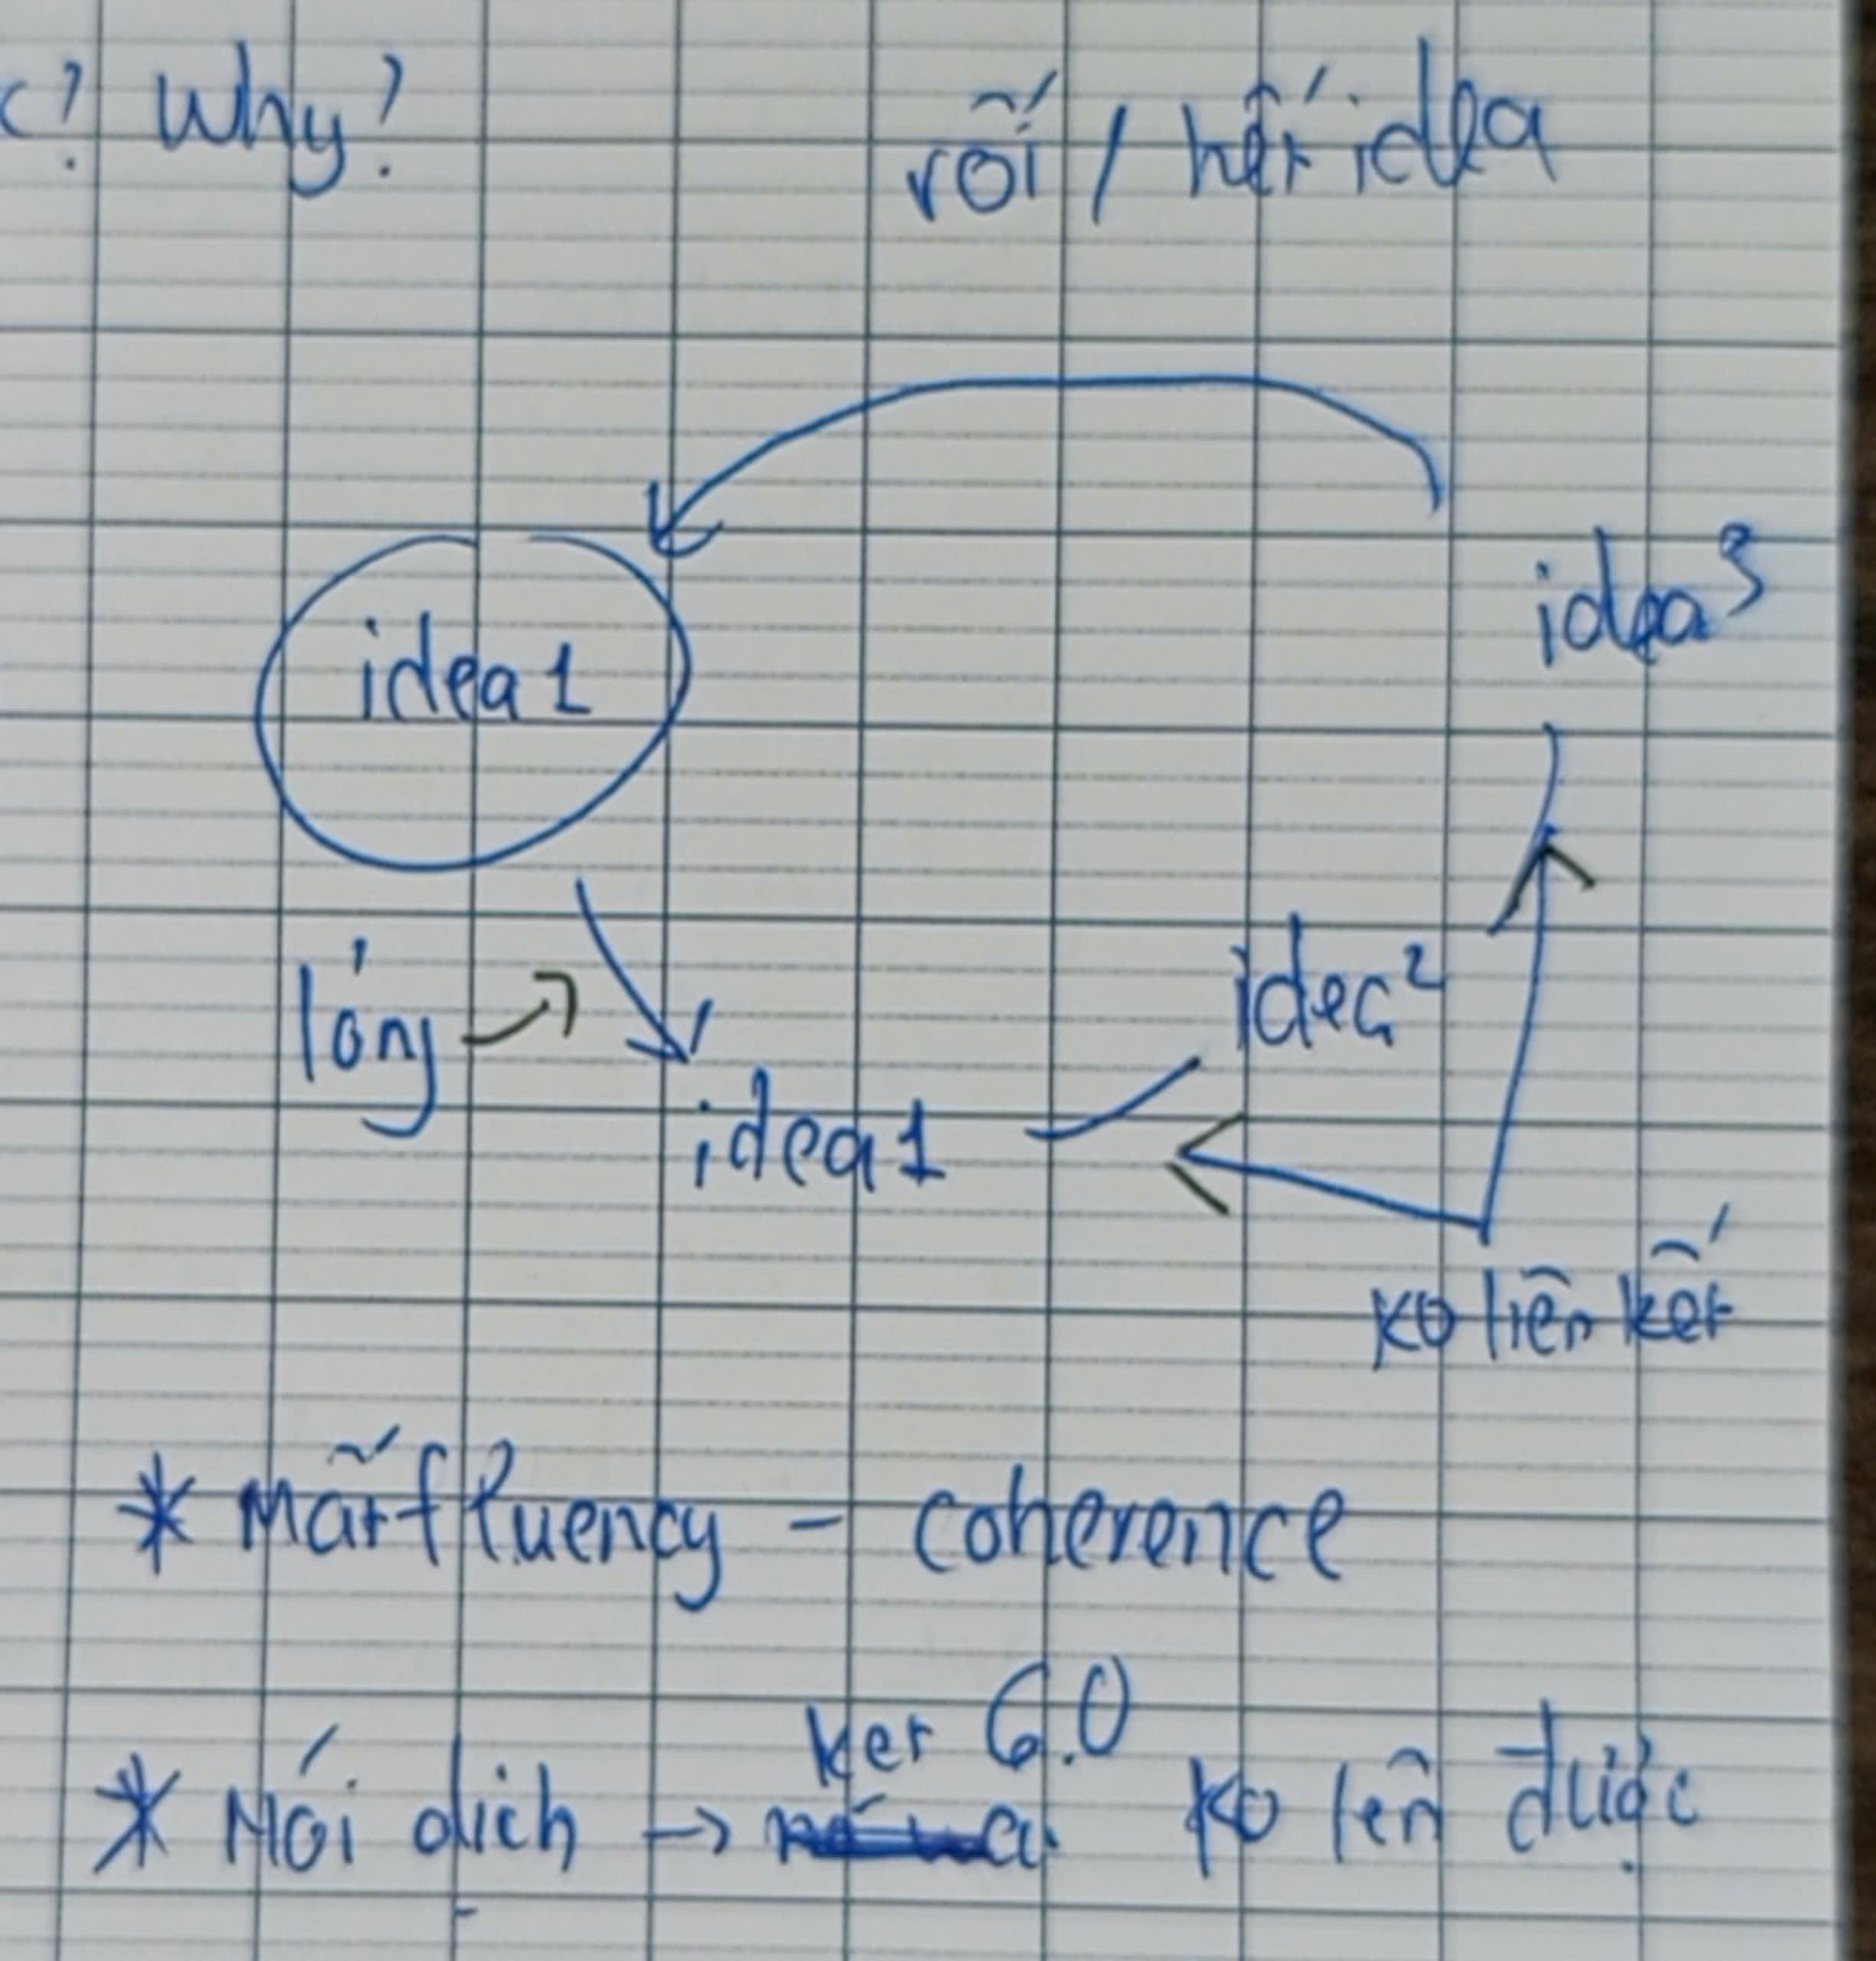 ? Why?
rối / hết idea
idea 3
idea 1
lóng
idea 2
idea 1
ko liên kết
* Mất fluency - coherence
ket 6.0
* Nói dịch → ko lên được